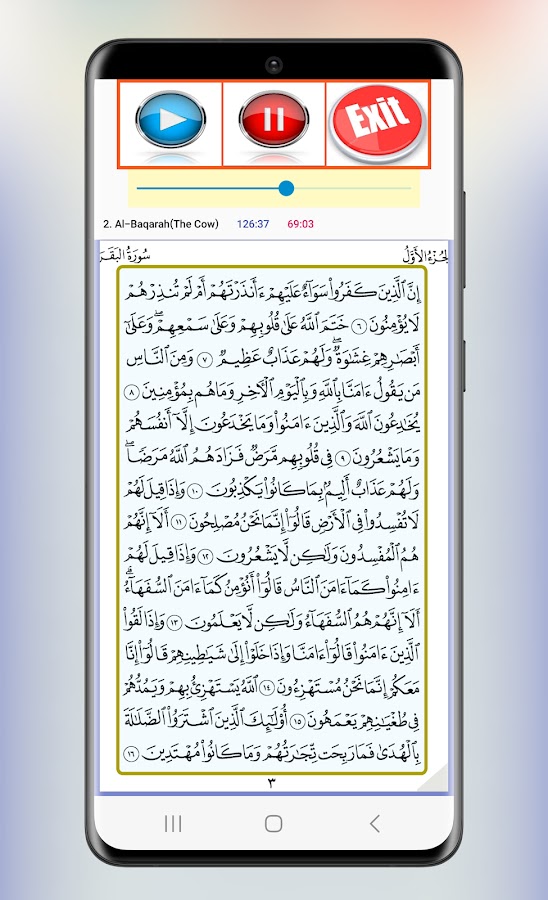 Exit
2. Al-Baqarah(The Cow) 126:37 69:03
سُورَةُ البَقَرَ الجُزْءُ الأَوَّلُ
إِنَّ ٱلَّذِينَ كَفَرُوا۟ سَوَآءٌ عَلَيْهِمْ ءَأَنذَرْتَهُمْ أَمْ لَمْ تُنذِرْهُمْ
لَا يُؤْمِنُونَ ٦ خَتَمَ ٱللَّهُ عَلَىٰ قُلُوبِهِمْ وَعَلَىٰ سَمْعِهِمْ ۖ وَعَلَىٰٓ
أَبْصَـٰرِهِمْ غِشَـٰوَةٌ ۖ وَلَهُمْ عَذَابٌ عَظِيمٌ ٧ وَمِنَ ٱلنَّاسِ
مَن يَقُولُ ءَامَنَّا بِٱللَّهِ وَبِٱلْيَوْمِ ٱلْـَٔاخِرِ وَمَا هُم بِمُؤْمِنِينَ ٨
يُخَـٰدِعُونَ ٱللَّهَ وَٱلَّذِينَ ءَامَنُوا۟ وَمَا يَخْدَعُونَ إِلَّآ أَنفُسَهُمْ
وَمَا يَشْعُرُونَ ٩ فِى قُلُوبِهِم مَّرَضٌ فَزَادَهُمُ ٱللَّهُ مَرَضًا ۖ
وَلَهُمْ عَذَابٌ أَلِيمٌۢ بِمَا كَانُوا۟ يَكْذِبُونَ ١٠ وَإِذَا قِيلَ لَهُمْ
لَا تُفْسِدُوا۟ فِى ٱلْأَرْضِ قَالُوٓا۟ إِنَّمَا نَحْنُ مُصْلِحُونَ ١١ أَلَآ إِنَّهُمْ
هُمُ ٱلْمُفْسِدُونَ وَلَـٰكِن لَّا يَشْعُرُونَ ١٢ وَإِذَا قِيلَ لَهُمْ
ءَامِنُوا۟ كَمَآ ءَامَنَ ٱلنَّاسُ قَالُوٓا۟ أَنُؤْمِنُ كَمَآ ءَامَنَ ٱلسُّفَهَآءُ ۗ
أَلَآ إِنَّهُمْ هُمُ ٱلسُّفَهَآءُ وَلَـٰكِن لَّا يَعْلَمُونَ ١٣ وَإِذَا لَقُوا۟
ٱلَّذِينَ ءَامَنُوا۟ قَالُوٓا۟ ءَامَنَّا وَإِذَا خَلَوْا۟ إِلَىٰ شَيَـٰطِينِهِمْ قَالُوٓا۟ إِنَّا
مَعَكُمْ إِنَّمَا نَحْنُ مُسْتَهْزِءُونَ ١٤ ٱللَّهُ يَسْتَهْزِئُ بِهِمْ وَيَمُدُّهُمْ
فِى طُغْيَـٰنِهِمْ يَعْمَهُونَ ١٥ أُو۟لَـٰٓئِكَ ٱلَّذِينَ ٱشْتَرَوُا۟ ٱلضَّلَـٰلَةَ
بِٱلْهُدَىٰ فَمَا رَبِحَت تِّجَـٰرَتُهُمْ وَمَا كَانُوا۟ مُهْتَدِينَ ١٦
٣